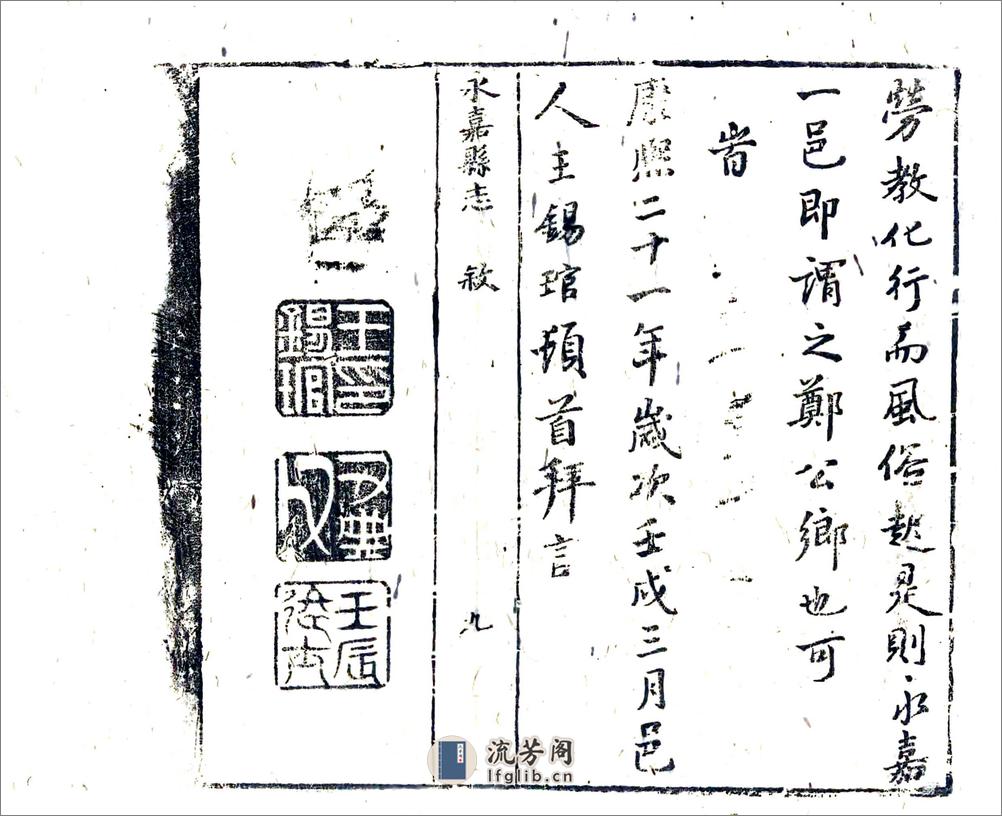 勞教化行而風俗起是則永嘉
一邑即謂之鄭公鄉也可
旹
康熙二十一年歲次壬戌三月邑
人主錫琯頓首拜言
永嘉縣志 敘 九
王印錫琯
壬辰進士
流芳阁
lfglib.cn